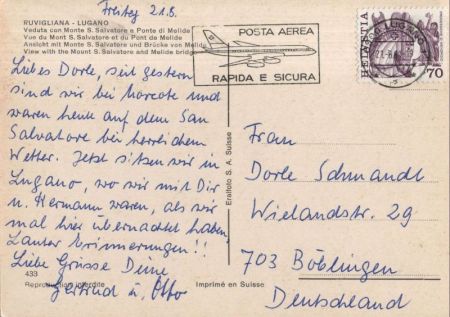 Freitag 21.8.
RUVIGLIANA - LUGANO
Veduta con Monte S. Salvatore e Ponte di Melide
Vue du Mont S. Salvatore et du Pont de Melide
Ansicht mit Monte S. Salvatore und Brücke von Melide
View with the Mount S. Salvatore and Melide bridge
POSTA AEREA
RAPIDA E SICURA
HELVETIA
70
Liebes Dorle, seit gestern
sind wir bei Morcote und
waren heute auf dem San
Salvatore bei herrlichem
Wetter. Jetzt sitzen wir in
Lugano, wo wir mit Dir
u. Hermann waren, als wir
mal hier übernachtet haben.
Lauter Erinnerungen!!
Liebe Grüsse Deine
Gertrud u. Otto
433
Reproduction interdite
Imprimé en Suisse
Engifoto S. A. Suisse
Frau
Dorle Schmandt
Wielandstr. 29
703 Böblingen
Deutschland